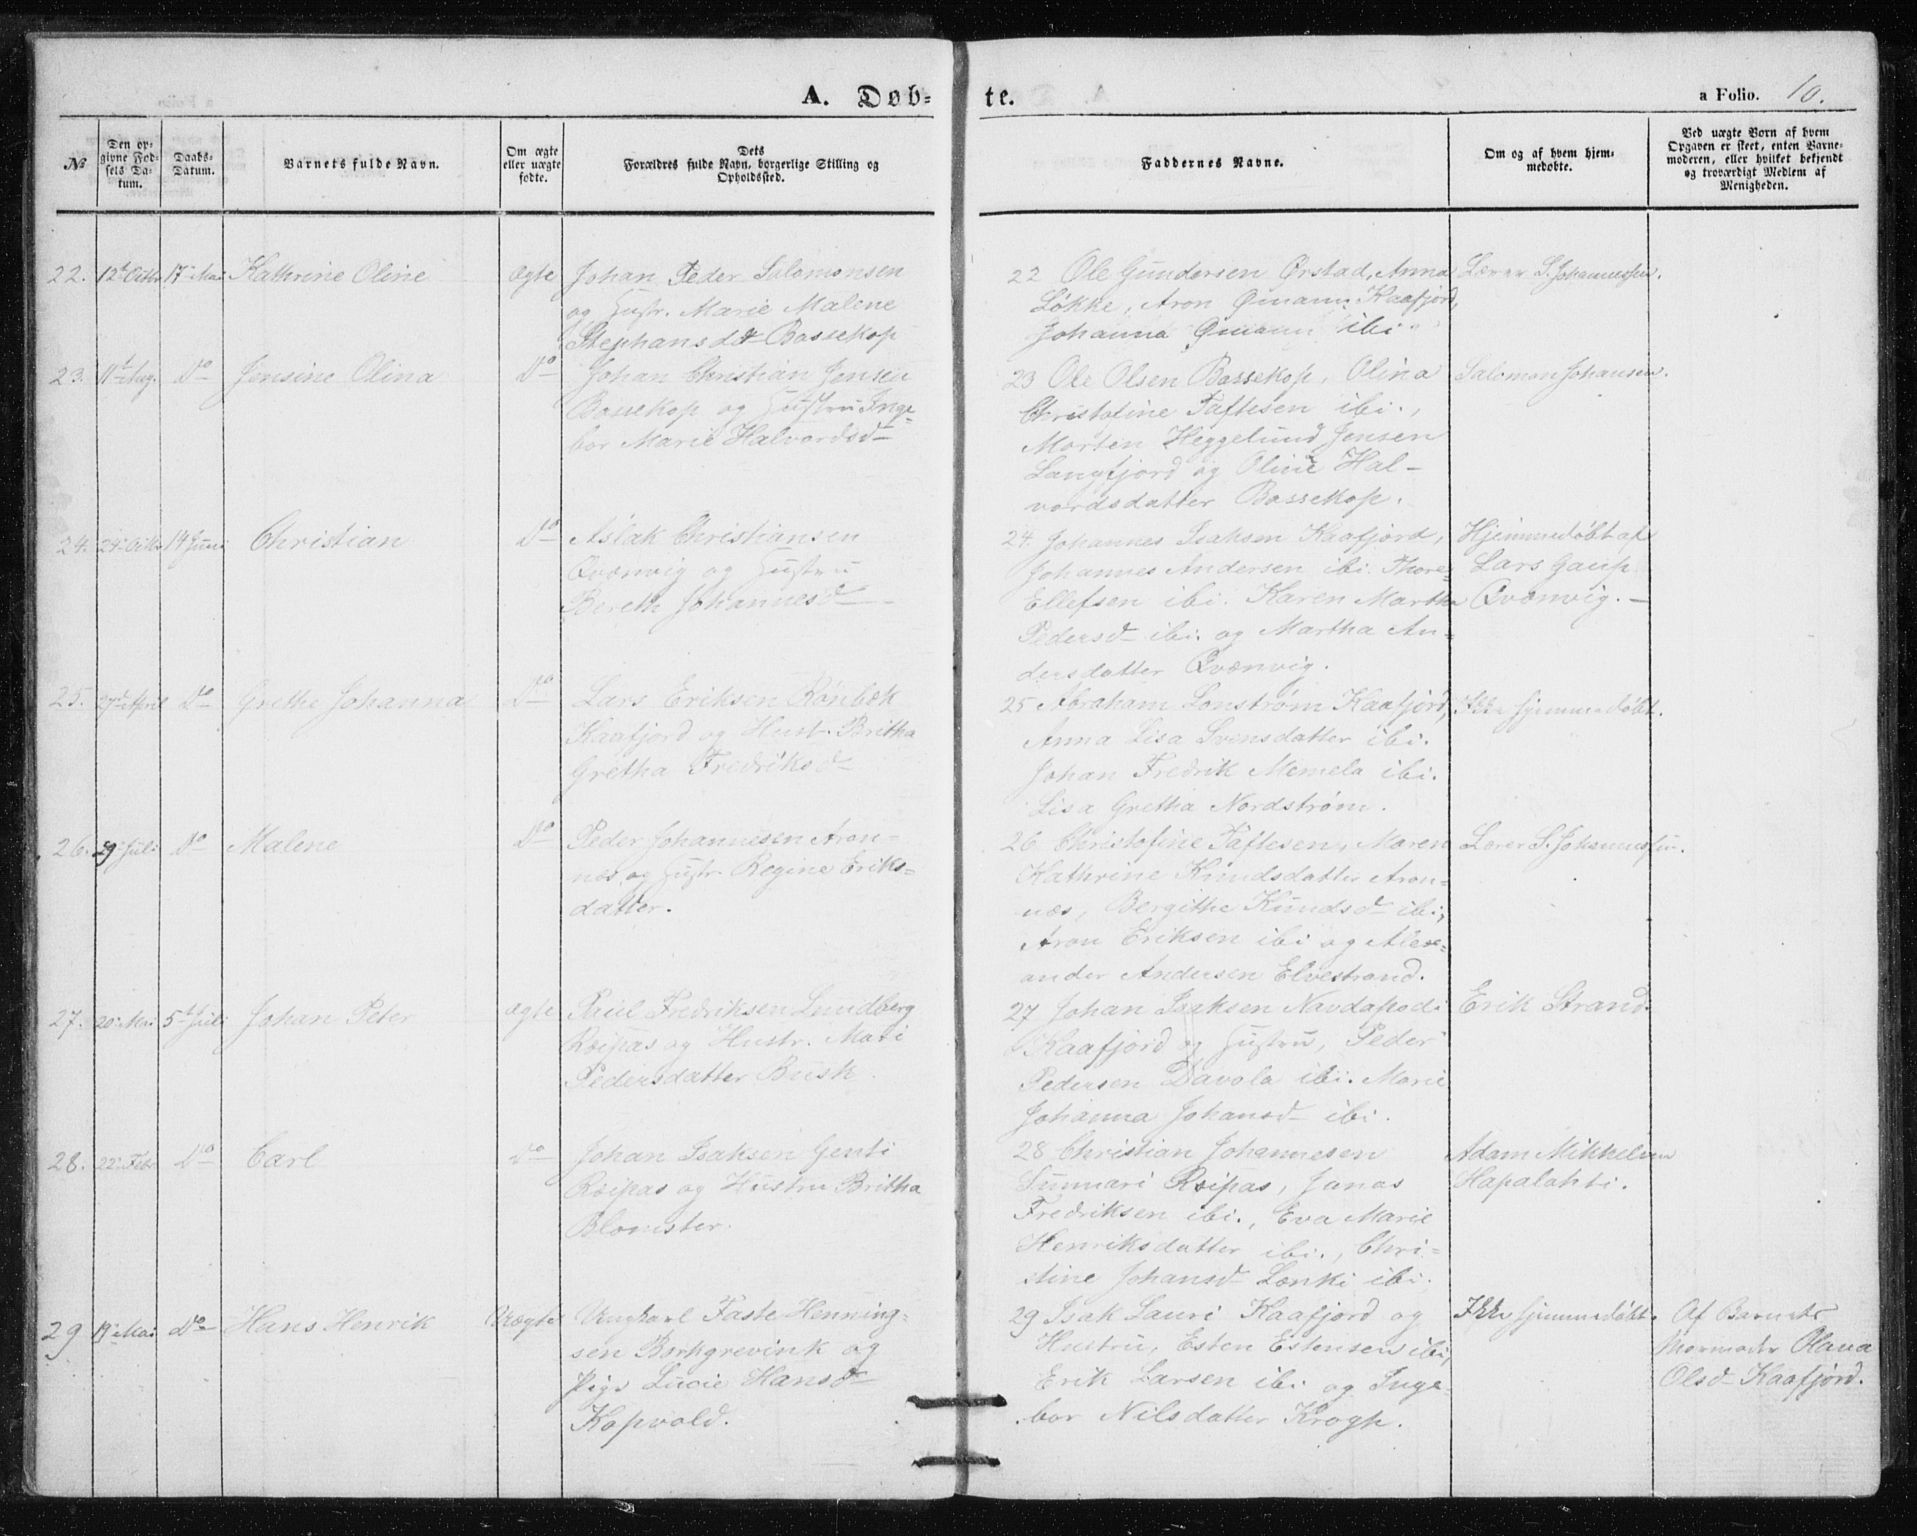 A. Døb- te. a Folio. 10.
№
Den op-
givne Fød-
sels Da-
tum.
Daabs-
Datum.
Barnets fulde Navn.
Om ægte
eller uægte
fødte.
Dets
Forældres fulde Navn, borgerlige Stilling og
Opholdssted.
Faddernes Navne.
Om og af hvem hjem-
medøbte.
Ved uægte Børn af hvem
Opgaven er skeet, enten Barne-
moderen, eller hvilket bekjendt
og troværdigt Medlem af
Menigheden.
22. 12t Octbr 17de Mai Kathrine Oline ægte Johan Peder Salomonsen
og Hustr. Marie Malene
Stephansdt Bossekop
22 Ole Gundersen Ørstad, Anna
Løkke, Aron Qmann Kaafjord,
Johanna Qmann ibi.
Lærer S. Johannessen.
23. 11t Aug. Do Jensine Olina Do Johan Christian Jensen
Bossekop og Hustru Inge-
bor Marie Halvordsd
23 Ole Olsen Bossekop, Olina
Christofine Täftesen ibi.,
Morten Heggelund Jensen
Langfjord og Oline Hal-
vordsdatter Bossekop.
Salomon Johansen.
24. 24de Octb 14 Juni Christian Do Aslak Christiansen
Qvænvig og Hustru
Bereth Johannesd
24. Johannes Isaksen Kaafjord,
Johannes Andersen ibi. Thore
Ellefsen ibi. Karen Martha
Pedersd ibi. og Martha An-
dersdatter Qvænvig.
Hjemmedøbt af
Lars Gaup
Qvænvig.-
25. 27de April Do Grethe Johanna Do Lars Eriksen Rönbæk
Kaafjord og Hust. Britha
Gretha Fredriksd
25 Abraham Lonstrøm Kaafjord,
Anna Lisa Svensdatter ibi.
Johan Fredrik Memela ibi.
Lisa Gretha Nordstrøm.
Ikke hjemmedøbt.
26. 29 Juli Do Malene Do Peder Johannesen Aron-
næs og Hustr. Regine Eriks-
datter.
26 Christofine Täftesen, Maren
Kathrine Knudsdatter Aron-
næs, Bergithe Knudsd ibi,
Aron Eriksen ibi og Alex-
ander Andersen Elvestrand.
Lærer S. Johannessen.
27. 20de Mai 5te Juli Johan Peter ægte Paul Fredriksen Lundberg
Raipas og Hustr. Mari
Pedersdatter Busk.
27 Johan Isaksen Navdapodi
Kaafjord og Hustru, Peder
Pedersen Davola ibi. Marie
Johanna Johansd ibi.
Erik Strand.
28. 22de Febr Do Carl Do Johan Isaksen Genti
Raipas og Hustru Britha
Blomster.
28 Christian Johannesen
Sunnari Raipas, Jonas
Fredriksen ibi., Eva Marie
Henriksdatter ibi., Chri-
stine Johansd Lænki ibi.
Adam Mikkelsen
Hapalahti.
29 19de Mai Do Hans Henrik Uægte Ungkarl Faste Henning-
sen Borkgrevink og
Pige Lucie Hansd
Kopvold.
29 Isak Lauri Kaafjord og
Hustru, Esten Estensen ibi,
Erik Larsen ibi og Inge-
bor Nilsdatter Krogh.
Ikke hjemmedøbt.
Af Barnets
Mormoder Olava
Olsd Kaafjord.